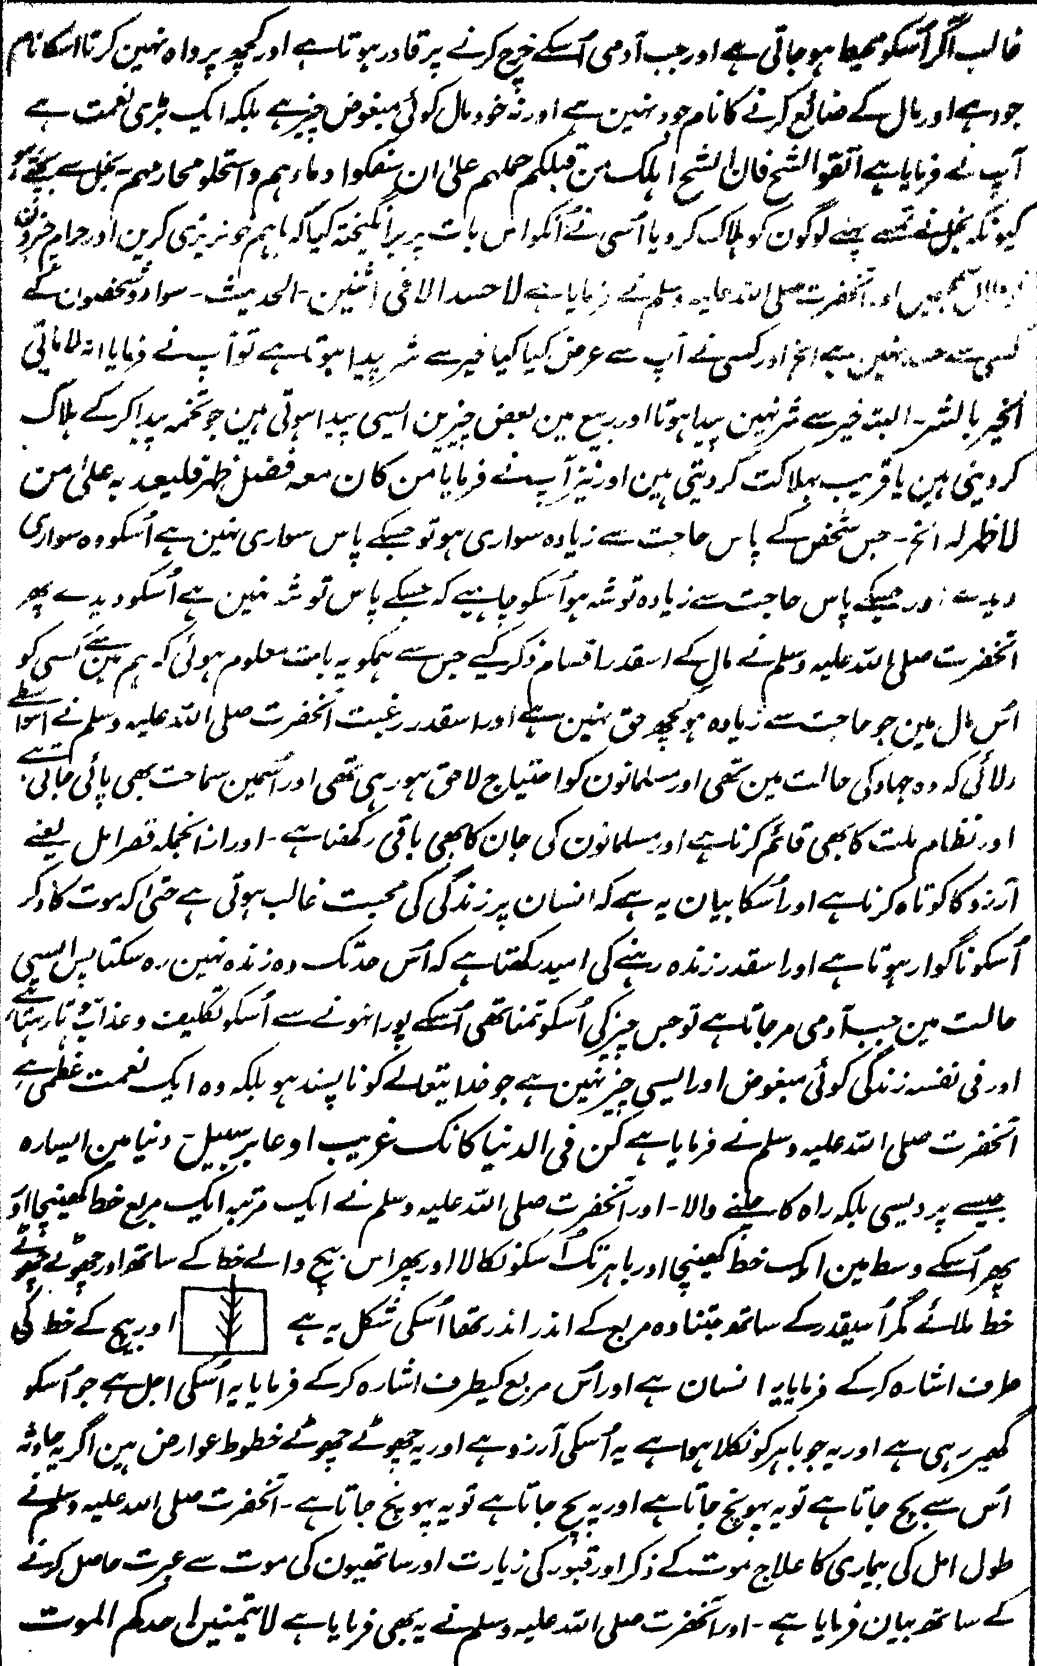 غالب آکر اُسکو محیط ہو جاتی ہے اور جب آدمی اُسکے خرچ کرنے پر قادر ہوتا ہے اور کچھ پرواہ نہین کرتا اسکا نام
جود ہے اور مال کے ضائع کرنے کا نام جود نہین ہے اور نہ خود مال کوئی مبغوض چیز ہے بلکہ ایک بڑی نعمت ہے
آپ نے فرمایا ہے اتقوا الشح فان الشح اہلک من قبلکم حملہم علیٰ ان سفکوا دماءہم و استحلو محارمہم۔ بخل سے بچتے رہو
کیونکہ بخل نے تمسے پہلے لوگون کو ہلاک کر دیا اُسی نے اُنکو اس بات پر برانگیختہ کیا کہ باہم خونریزی کرین اور حرام چیزون
حلال سمجھین اور آنحضرت صلی اللہ علیہ وسلم نے فرمایا ہے لا حسد الا فی اثنین۔ الحدیث۔ سوا دو شخصون کے
کسی سے حسد نہین ہے الخ اور کسی نے آپ سے عرض کیا کیا خیر سے شر پیدا ہوتا ہے تو آپ نے فرمایا انہ لا یاتی
الخیر بالشر۔ البتہ خیر سے شر نہین پیدا ہوتا اور ربیع مین بعض چیزین ایسی پیدا ہوتی ہین جو تخمہ پیدا کر کے ہلاک
کر دیتی ہین یا قریب بہلاکت کر دیتی ہین اور نیز آپ نے فرمایا من کان معہ فضل ظہر فلیعد بہ علیٰ من
لا ظہر لہ الخ۔ جس شخص کے پاس حاجت سے زیادہ سواری ہو تو جسکے پاس سواری نہین ہے اُسکو وہ سواری
دیدے اور جسکے پاس حاجت سے زیادہ توشہ ہو اُسکو چاہیے کہ جسکے پاس توشہ نہین ہے اُسکو دیدے پھر
آنحضرت صلی اللہ علیہ وسلم نے مال کے اسقدر اقسام ذکر کیے جس سے ہمکو یہ بات معلوم ہوئی کہ ہم مین سے کسی کو
اس مال مین جو حاجت سے زیادہ ہو کچھ حق نہین ہے اور اسقدر رغبت آنحضرت صلی اللہ علیہ وسلم نے اسواسطے
دلائی کہ وہ جہاد کی حالت مین تھی اور مسلمانون کو احتیاج لاحق ہو رہی تھی اور اُسمین سماحت بھی پائی جاتی ہے
اور نظام ملت کا بھی قائم کرنا ہے اور مسلمانون کی جان کا بھی باقی رکھنا ہے۔ اور ازانجملہ قصر امل یعنے
آرزو کا کوتاہ کرنا ہے اور اُسکا بیان یہ ہے کہ انسان پر زندگی کی محبت غالب ہوتی ہے حتیٰ کہ موت کا ذکر
اُسکو ناگوار ہوتا ہے اور اسقدر زندہ رہنے کی امید رکھتا ہے کہ اُس حد تک وہ زندہ نہین رہ سکتا پس ایسی
حالت مین جب آدمی مر جاتا ہے تو جس چیز کی اُسکو تمنا تھی اُسکے پورا نہونے سے اُسکو تکلیف و عذاب ہوتا رہتا ہے
اور فی نفسہ زندگی کوئی مبغوض اور ایسی چیز نہین ہے جو خدا یتعالے کو ناپسند ہو بلکہ وہ ایک نعمت عظمیٰ ہے
آنحضرت صلی اللہ علیہ وسلم نے فرمایا ہے کن فی الدنیا کانک غریب او عابر سبیل۔ دنیا مین ایسا رہ
جیسے پردیسی بلکہ راہ کا چلنے والا۔ اور آنحضرت صلی اللہ علیہ وسلم نے ایک مرتبہ ایک مربع خط کھینچا اور
پھر اُسکے وسط مین ایک خط کھینچا اور باہر تک اُسکو نکالا اور پھر اس بیچ والے خط کے ساتھ اور چھوٹے چھوٹے
خط ملائے مگر اُسیقدر کے ساتھ جتنا وہ مربع کے اندر اندر تھا اُسکی شکل یہ ہے اور بیچ کے خط کی
طرف اشارہ کر کے فرمایا یہ انسان ہے اور اُس مربع کیطرف اشارہ کر کے فرمایا یہ اُسکی اجل ہے جو اُسکو
گھیر رہی ہے اور یہ جو باہر کو نکلا ہوا ہے یہ اُسکی آرزو ہے اور یہ چھوٹے چھوٹے خطوط عوارض ہین اگر یہ حادثہ
اُس سے بچ جاتا ہے تو یہ پہونچ جاتا ہے اور یہ بچ جاتا ہے تو یہ پہونچ جاتا ہے۔ آنحضرت صلی اللہ علیہ وسلم نے
طول امل کی بیماری کا علاج موت کے ذکر اور قبور کی زیارت اور ساتھیون کی موت سے عبرت حاصل کرنے
کے ساتھ بیان فرمایا ہے۔ اور آنحضرت صلی اللہ علیہ وسلم نے یہ بھی فرمایا ہے لا یتمنین احدکم الموت